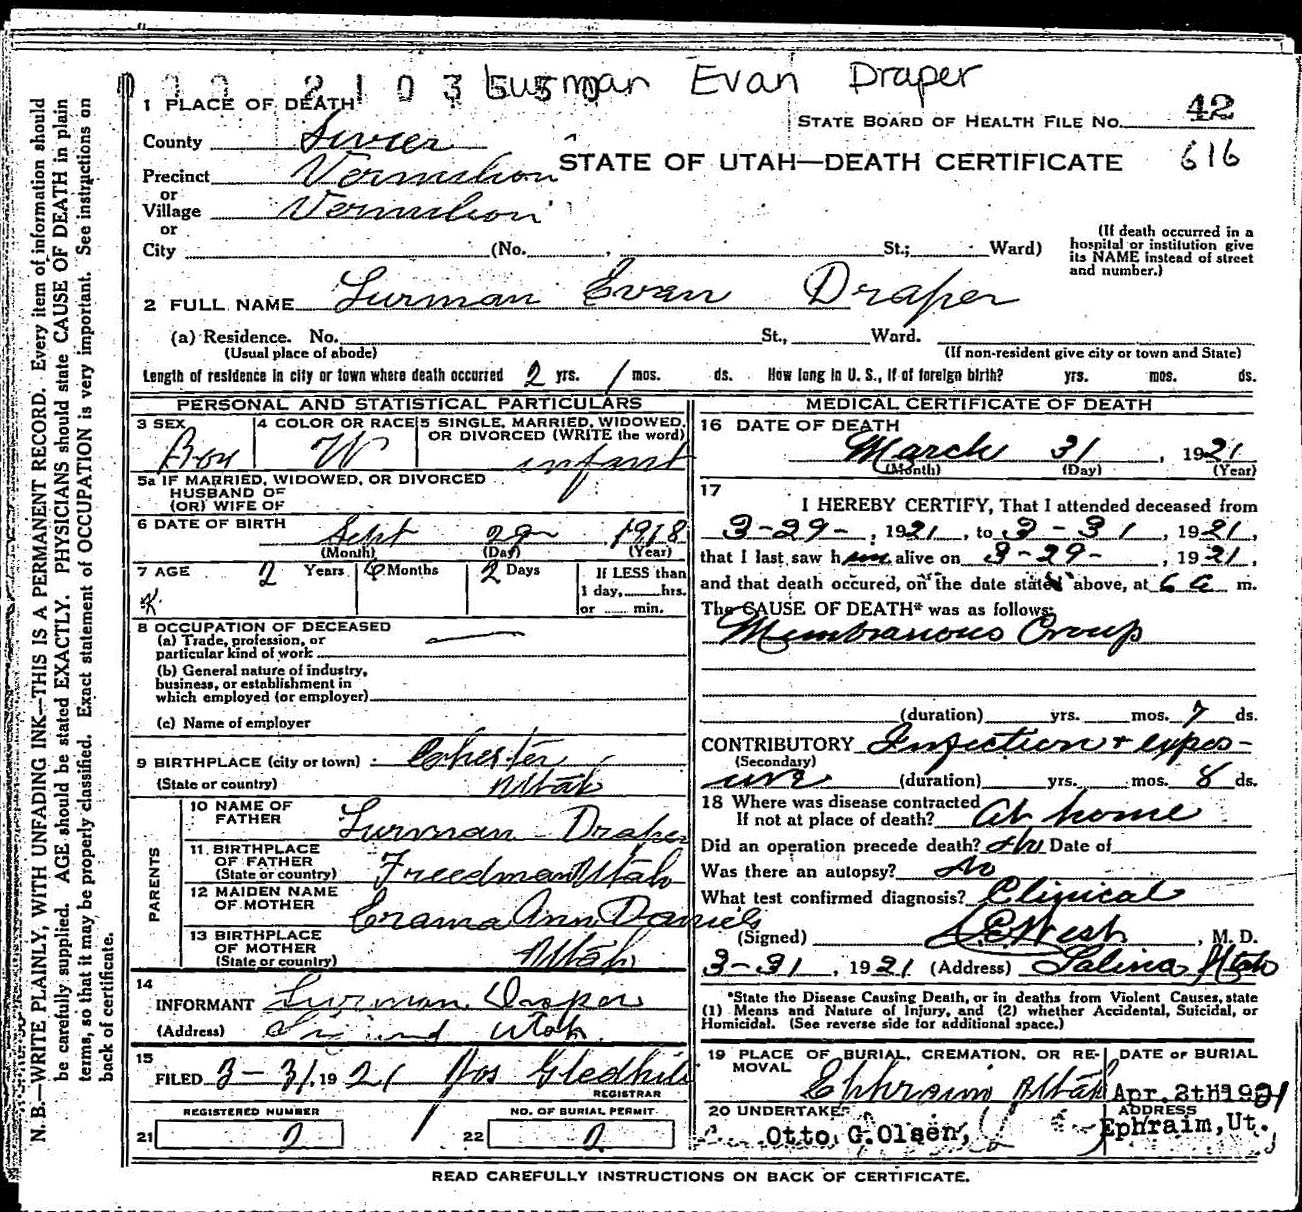 Lurman Evan Draper
1 PLACE OF DEATH
STATE BOARD OF HEALTH FILE No. 42
616
County Sevier
STATE OF UTAH—DEATH CERTIFICATE
Precinct Vermilion
or
Village Vermilion
or
City (No. , St.; Ward)
(If death occurred in a hospital or institution give its NAME instead of street and number.)
2 FULL NAME Lurman Evan Draper
(a) Residence. No. St., Ward.
(Usual place of abode) (If non-resident give city or town and State)
Length of residence in city or town where death occurred 2 yrs. 1 mos. ds. How long in U. S., if of foreign birth? yrs. mos. ds.
PERSONAL AND STATISTICAL PARTICULARS
3 SEX Boy
4 COLOR OR RACE W
5 SINGLE, MARRIED, WIDOWED, OR DIVORCED (WRITE the word) infant
5a IF MARRIED, WIDOWED, OR DIVORCED
HUSBAND OF
(OR) WIFE OF
6 DATE OF BIRTH Sept 29 1918
(Month) (Day) (Year)
7 AGE 2 Years 6 Months 2 Days
If LESS than
1 day, hrs.
or min.
8 OCCUPATION OF DECEASED
(a) Trade, profession, or
particular kind of work
(b) General nature of industry,
business, or establishment in
which employed (or employer)
(c) Name of employer
9 BIRTHPLACE (city or town) Chester
(State or country) Utah
PARENTS
10 NAME OF FATHER Lurman Draper
11 BIRTHPLACE OF FATHER (State or country) Freedman Utah
12 MAIDEN NAME OF MOTHER Erama Ann Daniels
13 BIRTHPLACE OF MOTHER (State or country) Utah
14
INFORMANT Lurman Draper
(Address) Utah
15
FILED 3-31, 1921 Jos Gledhill
REGISTRAR
REGISTERED NUMBER
21 2
NO. OF BURIAL PERMIT
22 2
MEDICAL CERTIFICATE OF DEATH
16 DATE OF DEATH
March 31, 1921
(Month) (Day) (Year)
17
I HEREBY CERTIFY, That I attended deceased from
3-29-, 1921, to 3-31, 1921,
that I last saw him alive on 3-29-, 1921,
and that death occured, on the date stated above, at 6 a m.
The CAUSE OF DEATH* was as follows:
Membranous Croup
(duration) yrs. mos. 7 ds.
CONTRIBUTORY Infection + expos-
(Secondary)
ure (duration) yrs. mos. 8 ds.
18 Where was disease contracted
If not at place of death? At home
Did an operation precede death? Date of
Was there an autopsy? No
What test confirmed diagnosis? Clinical
(Signed) West, M. D.
3-31, 1921 (Address) Salina Utah
*State the Disease Causing Death, or in deaths from Violent Causes, state
(1) Means and Nature of Injury, and (2) whether Accidental, Suicidal, or
Homicidal. (See reverse side for additional space.)
19 PLACE OF BURIAL, CREMATION, OR REMOVAL Ephraim Utah
DATE OF BURIAL Apr. 2th 1921
20 UNDERTAKER Otto G. Olsen,
ADDRESS Ephraim, Ut.
READ CAREFULLY INSTRUCTIONS ON BACK OF CERTIFICATE.
N. B.—WRITE PLAINLY, WITH UNFADING INK—THIS IS A PERMANENT RECORD. Every item of information should
be carefully supplied. AGE should be stated EXACTLY. PHYSICIANS should state CAUSE OF DEATH in plain
terms, so that it may be properly classified. Exact statement of OCCUPATION is very important. See instructions on
back of certificate.